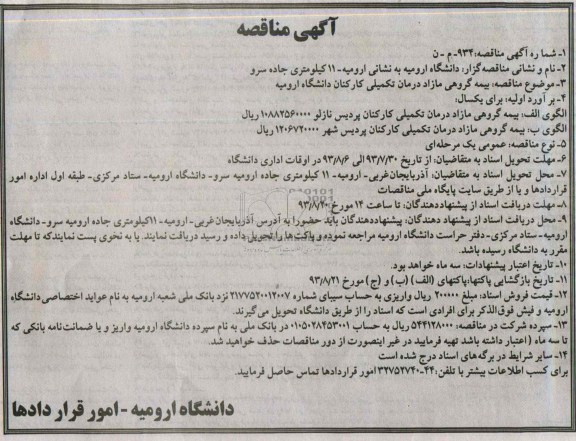 آگهی مناقصه
۱- شماره آگهی مناقصه: ۹۳۴- م - ن
۲- نام و نشانی مناقصه گزار: دانشگاه ارومیه به نشانی ارومیه- ۱۱ کیلومتری جاده سرو
۳- موضوع مناقصه: بیمه گروهی مازاد درمان تکمیلی کارکنان دانشگاه ارومیه
۴- بر آورد اولیه: برای یکسال:
الگوی الف: بیمه گروهی مازاد درمان تکمیلی کارکنان پردیس نازلو ۱۰۸۸۲۵۶۰۰۰۰ ریال
الگوی ب: بیمه گروهی مازاد درمان تکمیلی کارکنان پردیس شهر ۱۲۰۶۷۲۰۰۰۰ ریال
۵- نوع مناقصه: عمومی یک مرحله‌ای
۶- مهلت تحویل اسناد به متقاضیان: از تاریخ ۹۳/۷/۳۰ الی ۹۳/۸/۶ در اوقات اداری دانشگاه
۷- محل تحویل اسناد به متقاضیان: آذربایجان‌غربی- ارومیه- ۱۱ کیلومتری جاده ارومیه سرو- دانشگاه ارومیه- ستاد مرکزی- طبقه اول اداره امور
قراردادها و یا از طریق سایت پایگاه ملی مناقصات
۸- مهلت دریافت اسناد از پیشنهاددهندگان: تا ساعت ۱۴ مورخ ۹۳/۸/۲۰
۹- محل دریافت اسناد از پیشنهاد دهندگان: پیشنهاددهندگان باید حضورا به آدرس آذربایجان‌غربی- ارومیه- ۱۱کیلومتری جاده ارومیه سرو- دانشگاه
ارومیه- ستاد مرکزی- دفتر حراست دانشگاه ارومیه مراجعه نموده و پاکت‌ها را تحویل داده و رسید دریافت نمایند. یا به نحوی پست نمایندکه تا مهلت
مقرر به دانشگاه رسیده باشد.
۱۰- تاریخ اعتبار پیشنهادات: سه ماه خواهد بود.
۱۱- تاریخ بازگشایی پاکتها: پاکتهای (الف) (ب) و (ج) مورخ ۹۳/۸/۲۱
۱۲- قیمت فروش اسناد: مبلغ ۲۰۰۰۰۰ ریال واریزی به حساب سیبای شماره ۲۱۷۷۵۲۰۰۱۲۰۰۷ نزد بانک ملی شعبه ارومیه به نام عواید اختصاصی دانشگاه
ارومیه و فیش فوق‌الذکر برای افرادی است که اسناد را از طریق دانشگاه تحویل می‌گیرند.
۱۳- سپرده شرکت در مناقصه: ۵۴۴۱۲۸۰۰۰ ریال به حساب ۰۱۰۵۰۲۸۴۵۳۰۰۱ در بانک ملی به نام سپرده دانشگاه ارومیه واریز و یا ضمانت‌نامه بانکی که
تا سه ماه (اعتبار داشته باشد تهیه فرمایید در غیر اینصورت از دور مناقصات حذف خواهید شد.
۱۴- سایر شرایط در برگه‌های اسناد درج شده است
برای کسب اطلاعات بیشتر با تلفن: ۴۴-۳۲۷۵۲۷۴۰ امور قراردادها تماس حاصل فرمایید.
دانشگاه ارومیه - امور قرار دادها